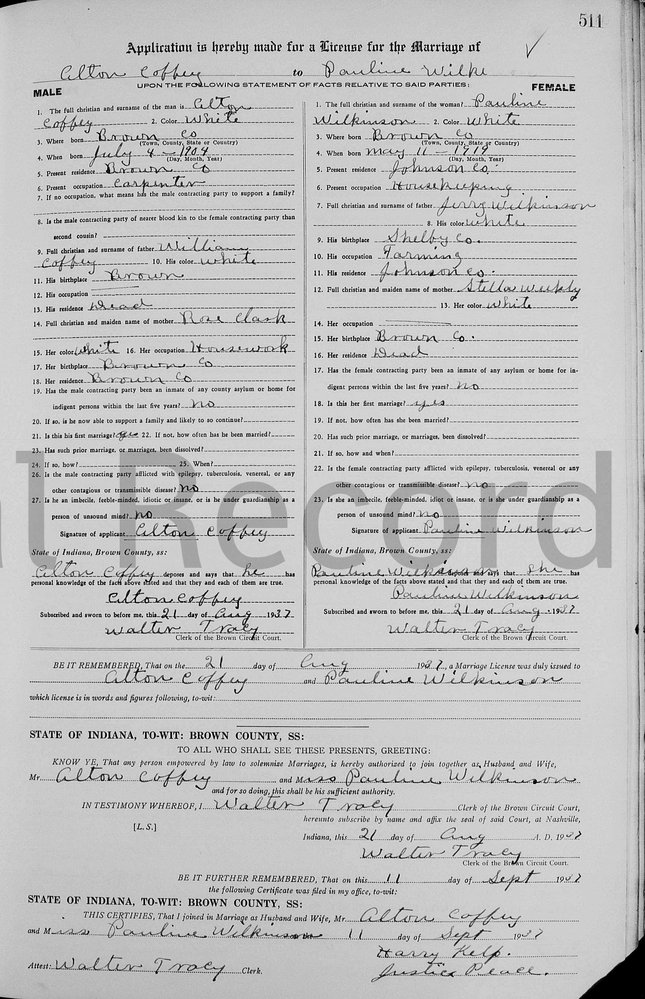 511
Application is hereby made for a License for the Marriage of
Alton Coffey to Pauline Wilke
UPON THE FOLLOWING STATEMENT OF FACTS RELATIVE TO SAID PARTIES:
MALE
1. The full christian and surname of the man is Alton
Coffey 2. Color White
3. Where born Brown Co
(Town, County, State or Country)
4. When born July 4-1904
(Day, Month, Year)
5. Present residence Brown Co
6. Present occupation Carpenter
7. If no occupation, what means has the male contracting party to support a family?
8. Is the male contracting party of nearer blood kin to the female contracting party than
second cousin?
9. Full christian and surname of father William
Coffey 10. His color White
11. His birthplace Brown
12. His occupation
13. His residence Dead
14. Full christian and maiden name of mother Rose Clark
15. Her color White 16. Her occupation Housework
17. Her birthplace Brown Co
18. Her residence Brown Co
19. Has the male contracting party been an inmate of any county asylum or home for
indigent persons within the last five years? no
20. If so, is he now able to support a family and likely to so continue?
21. Is this his first marriage? yes 22. If not, how often has he been married?
23. Has such prior marriage, or marriages, been dissolved?
24. If so, how? 25. When?
26. Is the male contracting party afflicted with epilepsy, tuberculosis, venereal, or any
other contagious or transmissible disease? no
27. Is he an imbecile, feeble-minded, idiotic or insane, or is he under guardianship as a
person of unsound mind? no
Signature of applicant Alton Coffey
State of Indiana, Brown County, ss:
Alton Coffey deposes and says that he has
personal knowledge of the facts above stated and that they and each of them are true.
Alton Coffey
Subscribed and sworn to before me, this 21 day of Aug 1937
Walter Tracy
Clerk of the Brown Circuit Court.
FEMALE
1. The full christian and surname of the woman? Pauline
Wilkinson 2. Color White
3. Where born Brown Co
(Town, County, State or Country)
4. When born May 11-1919
(Day, Month, Year)
5. Present residence Johnson Co.
6. Present occupation Housekeeping
7. Full christian and surname of father Jerry Wilkinson
8. His color White
9. His birthplace Shelby Co.
10. His occupation Farming
11. His residence Johnson Co.
12. Full christian and maiden name of mother Stella Weekly
13. Her color White
14. Her occupation
15. Her birthplace Brown Co.
16. Her residence Dead
17. Has the female contracting party been an inmate of any asylum or home for in-
digent persons within the last five years? no
18. Is this her first marriage? yes
19. If not, how often has she been married?
20. Has such prior marriage, or marriages, been dissolved?
21. If so, how and when?
22. Is the female contracting party afflicted with epilepsy, tuberculosis, venereal or any
other contagious or transmissible disease? no
23. Is she an imbecile, feeble-minded, idiot or insane, or is she under guardianship as a
person of unsound mind? no
Signature of applicant Pauline Wilkinson
State of Indiana, Brown County, ss:
Pauline Wilkinson deposes and says that she has
personal knowledge of the facts above stated and that they and each of them are true.
Pauline Wilkinson
Subscribed and sworn to before me, this 21 day of Aug. 1937
Walter Tracy
Clerk of the Brown Circuit Court.
l Record
BE IT REMEMBERED, That on the 21 day of Aug 1937, a Marriage License was duly issued to
Alton Coffey and Pauline Wilkinson
which license is in words and figures following, to-wit:
STATE OF INDIANA, TO-WIT: BROWN COUNTY, SS:
TO ALL WHO SHALL SEE THESE PRESENTS, GREETING:
KNOW YE, That any person empowered by law to solemnize Marriages, is hereby authorized to join together as Husband and Wife,
Mr. Alton Coffey and Miss Pauline Wilkinson
and for so doing, this shall be his sufficient authority.
IN TESTIMONY WHEREOF, I Walter Tracy Clerk of the Brown Circuit Court,
hereunto subscribe by name and affix the seal of said Court, at Nashville,
[L.S.]
Indiana, this 21 day of Aug A. D. 1937
Walter Tracy
Clerk of the Brown Circuit Court.
BE IT FURTHER REMEMBERED, That on this 11 day of Sept 1937
the following Certificate was filed in my office, to-wit:
STATE OF INDIANA, TO-WIT: BROWN COUNTY, SS:
THIS CERTIFIES, That I joined in Marriage as Husband and Wife, Mr. Alton Coffey
and Miss Pauline Wilkinson 11 day of Sept 1937
Harry Kelp.
Justice Peace.
Attest: Walter Tracy Clerk.